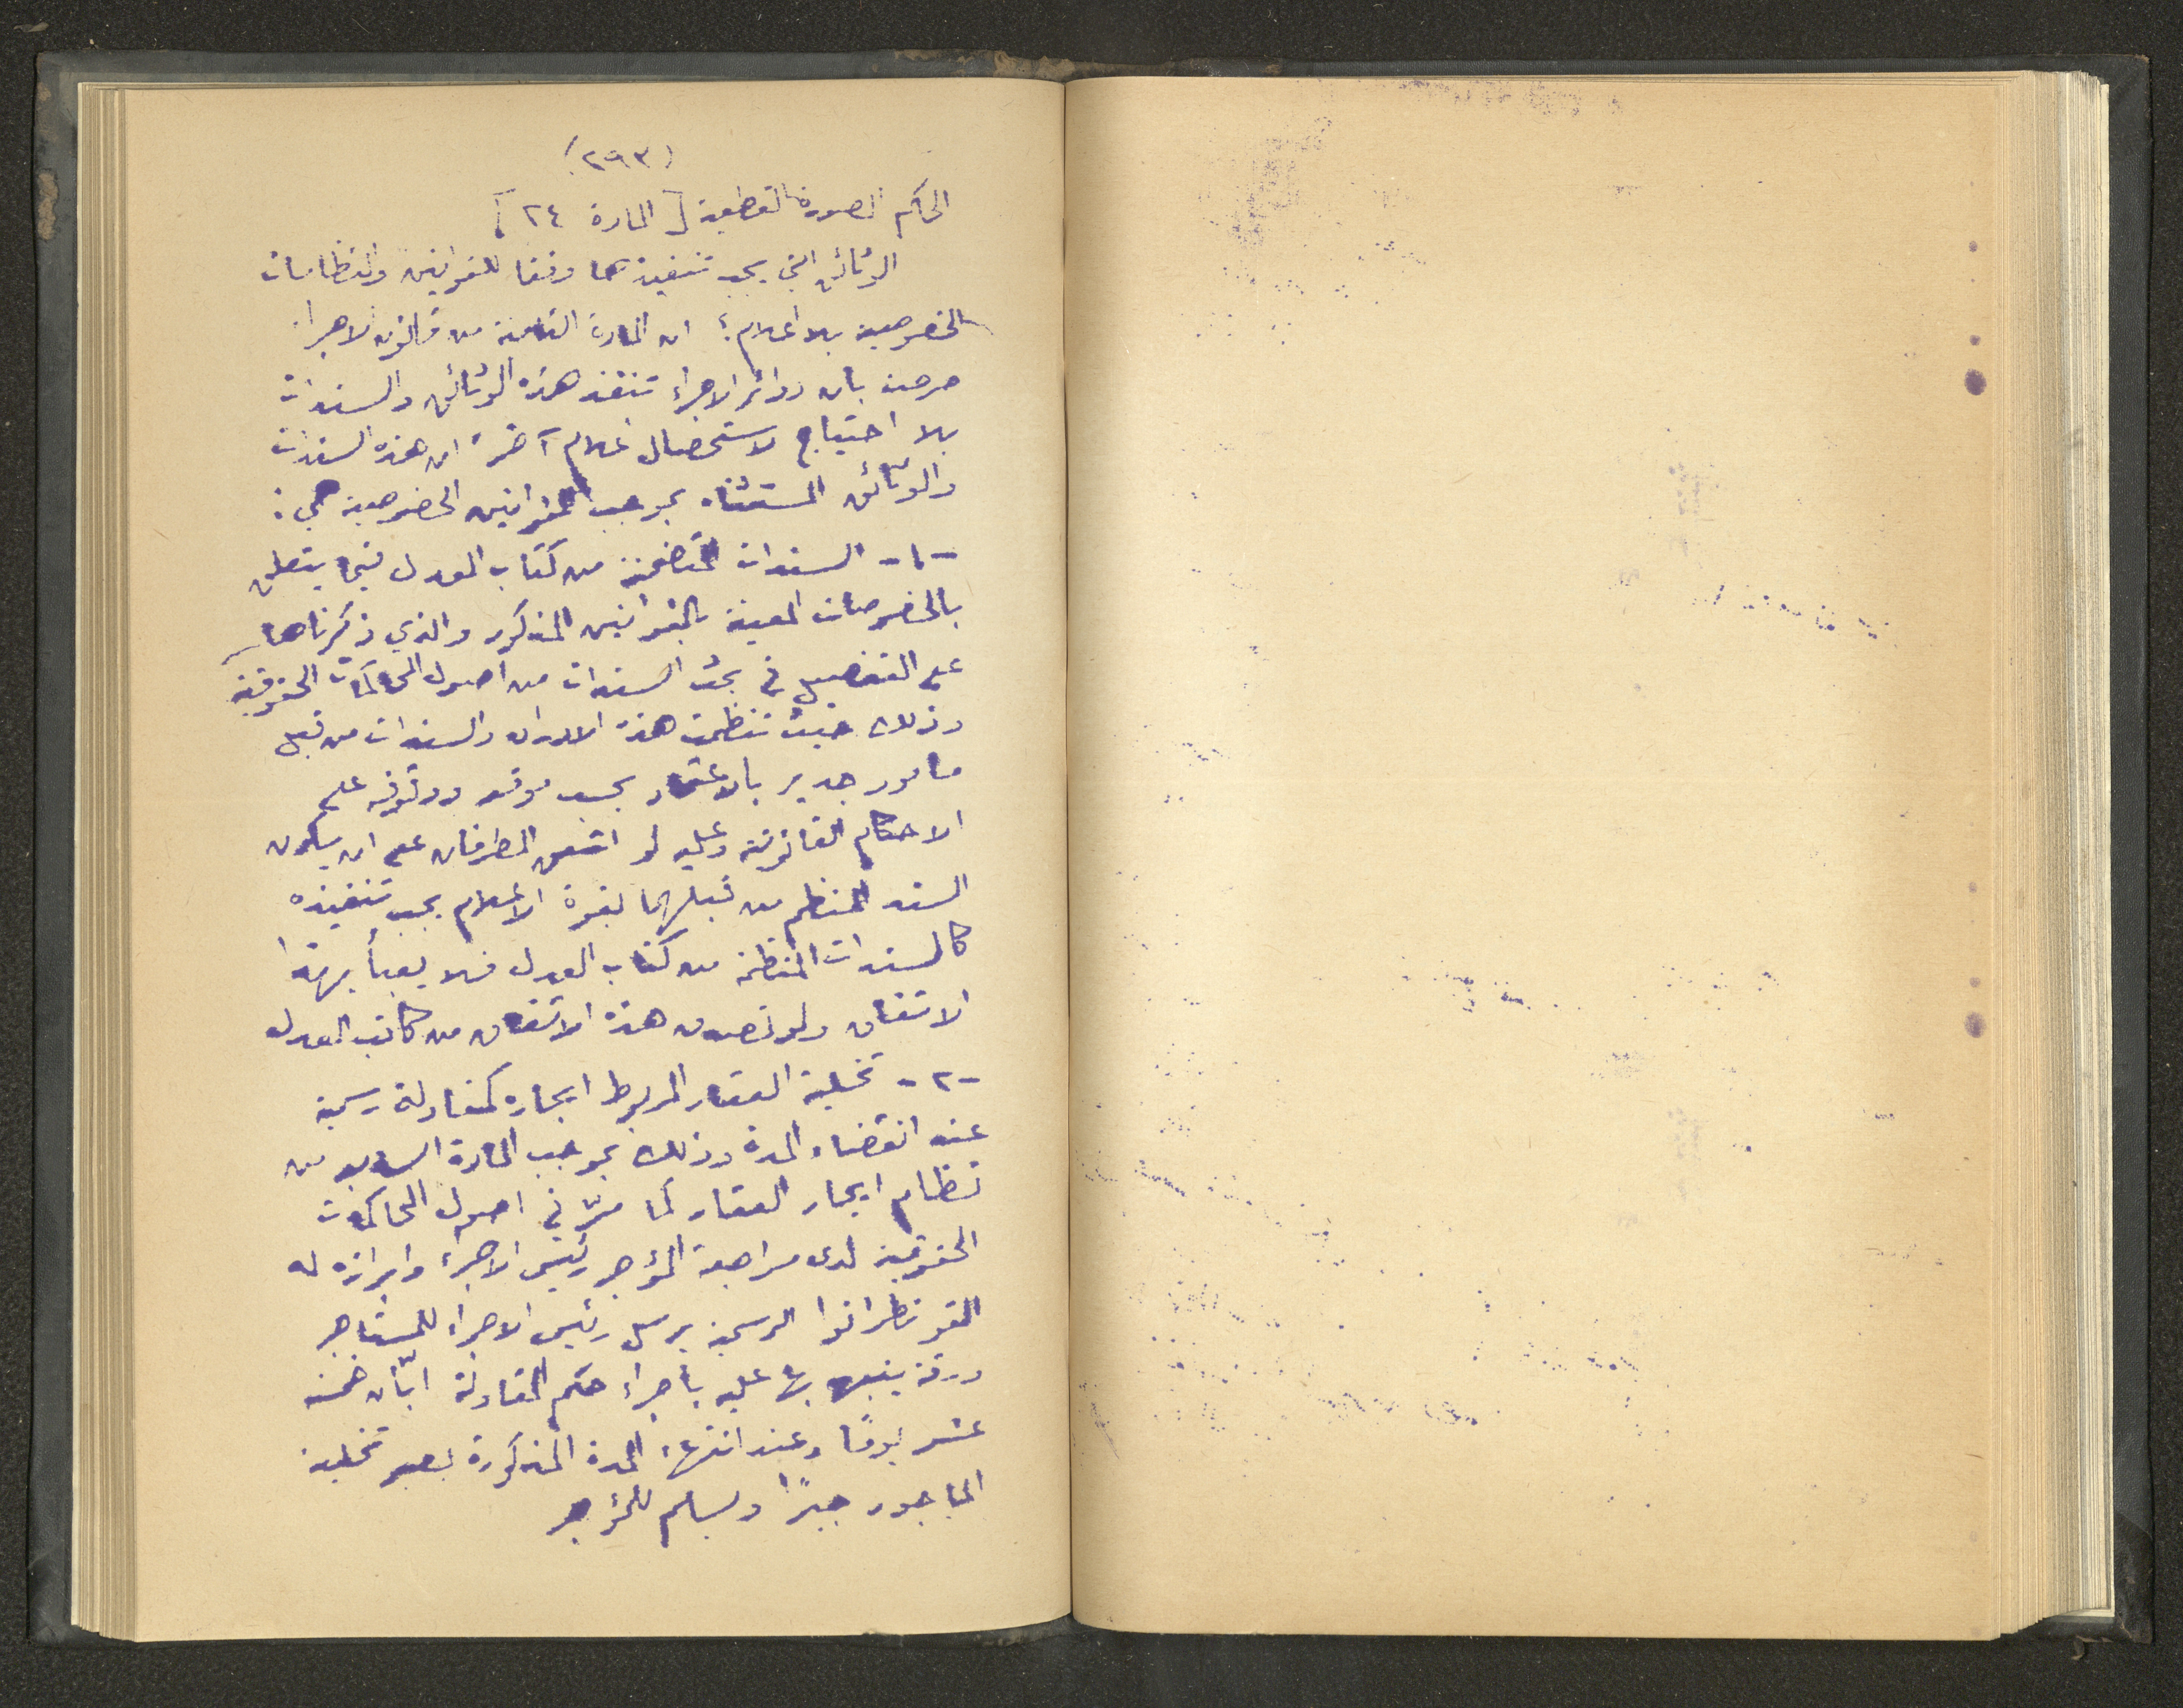 (٢٩٣)
الحكم الصورة القطعية [ المادة ٢٤ ]
الوثائق التي يجب تنفيذها وفقا للقوانين والنظامات
الخصوصية بلا اعلام؛ ان المادة الثامنة من قانون الاجراء
صرحت بان دوائر الاجراء تنفذ هذه الوثائق والسندات
بلا احتياج لاستحصال اعلام آخر ان هذه السندات
والوثائق المستثناة بموجب القوانين الخصوصية هي :
-١- السندات المتضمنة من كتاب العدل فيما يتعلق
بالخصوصات المعينة بالقوانين المذكور والذي ذكرناها
على التفصيل في بحث السندات من اصول المحاكمات الحقوقية
وذلك حيث تنظمت هذه الاوراق والسندات من قبل
مامور جدير بالاعتماد بحسب موقعه ووقوفه على
الاحكام القانونية وعليه لو اتفق الطرفان على ان يكون
السند المنظم من قبلهما بقوة الاعلام يجب تنفيذه
كالسندات المنظمة من كتاب العدل فلا يعبأ بهذا
الاتفاق ولو تصدق هذا الاتفاق من كاتب العدل
-٢- تخلية العقار المربوط ايجاره كمقاولة رسمية
عند انقضاء المدة وذلك بموجب المادة السابعة من
نظام ايجار العقار كما مرّ في اصول المحاكمات
الحقوقية لدى مراجعة المؤجر رئيس الاجراء وابرازه له
القونطراتوا الرسمية يرسل رئيس الاجراء للمستاجر
ورقة ينبه بها عليه باجراء حكم المقاولة ابّان خمسة
عشر يوماً وعند انتهاء المدة المذكورة يصير تخلية
الماجور جبراً ويسلم للمؤجر